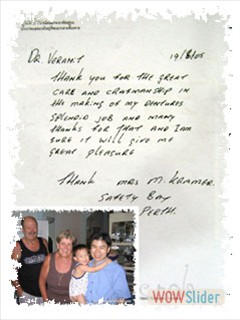 DR. VERANIT 19/8/05
THANK YOU FOR THE GREAT
CARE AND CRAFMANSHIP IN
THE MAKING OF MY DENTURES
SPLENDID JOB AND MANY
THANKS FOR THAT AND I AM
SURE IT WILL GIVE ME
GREAT PLEASURE
THANK MRS M. KRAMER.
SAFETY BAY
PERTH.
WOWSlider